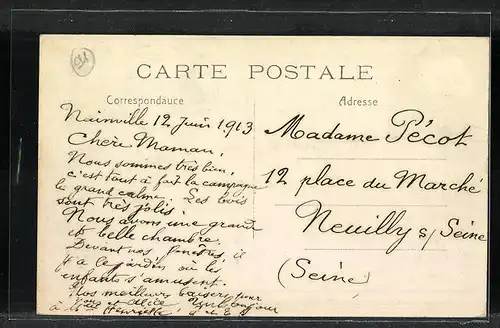 CARTE POSTALE
Correspondance
Nainville 12 Juin 1913
Chère Maman,
Nous sommes très bien,
c'est tout à fait la campagne
le grand calme. Les bois
sont très jolis.
Nous avons une grande
et belle chambre.
Devant nos fenêtres, il
y a le jardin où les
enfants s'amusent.
Nos meilleurs baisers pour
vous et Alice
à M Henriette
Adresse
Madame Pécot
12 place du Marché
Neuilly s/ Seine
(Seine)